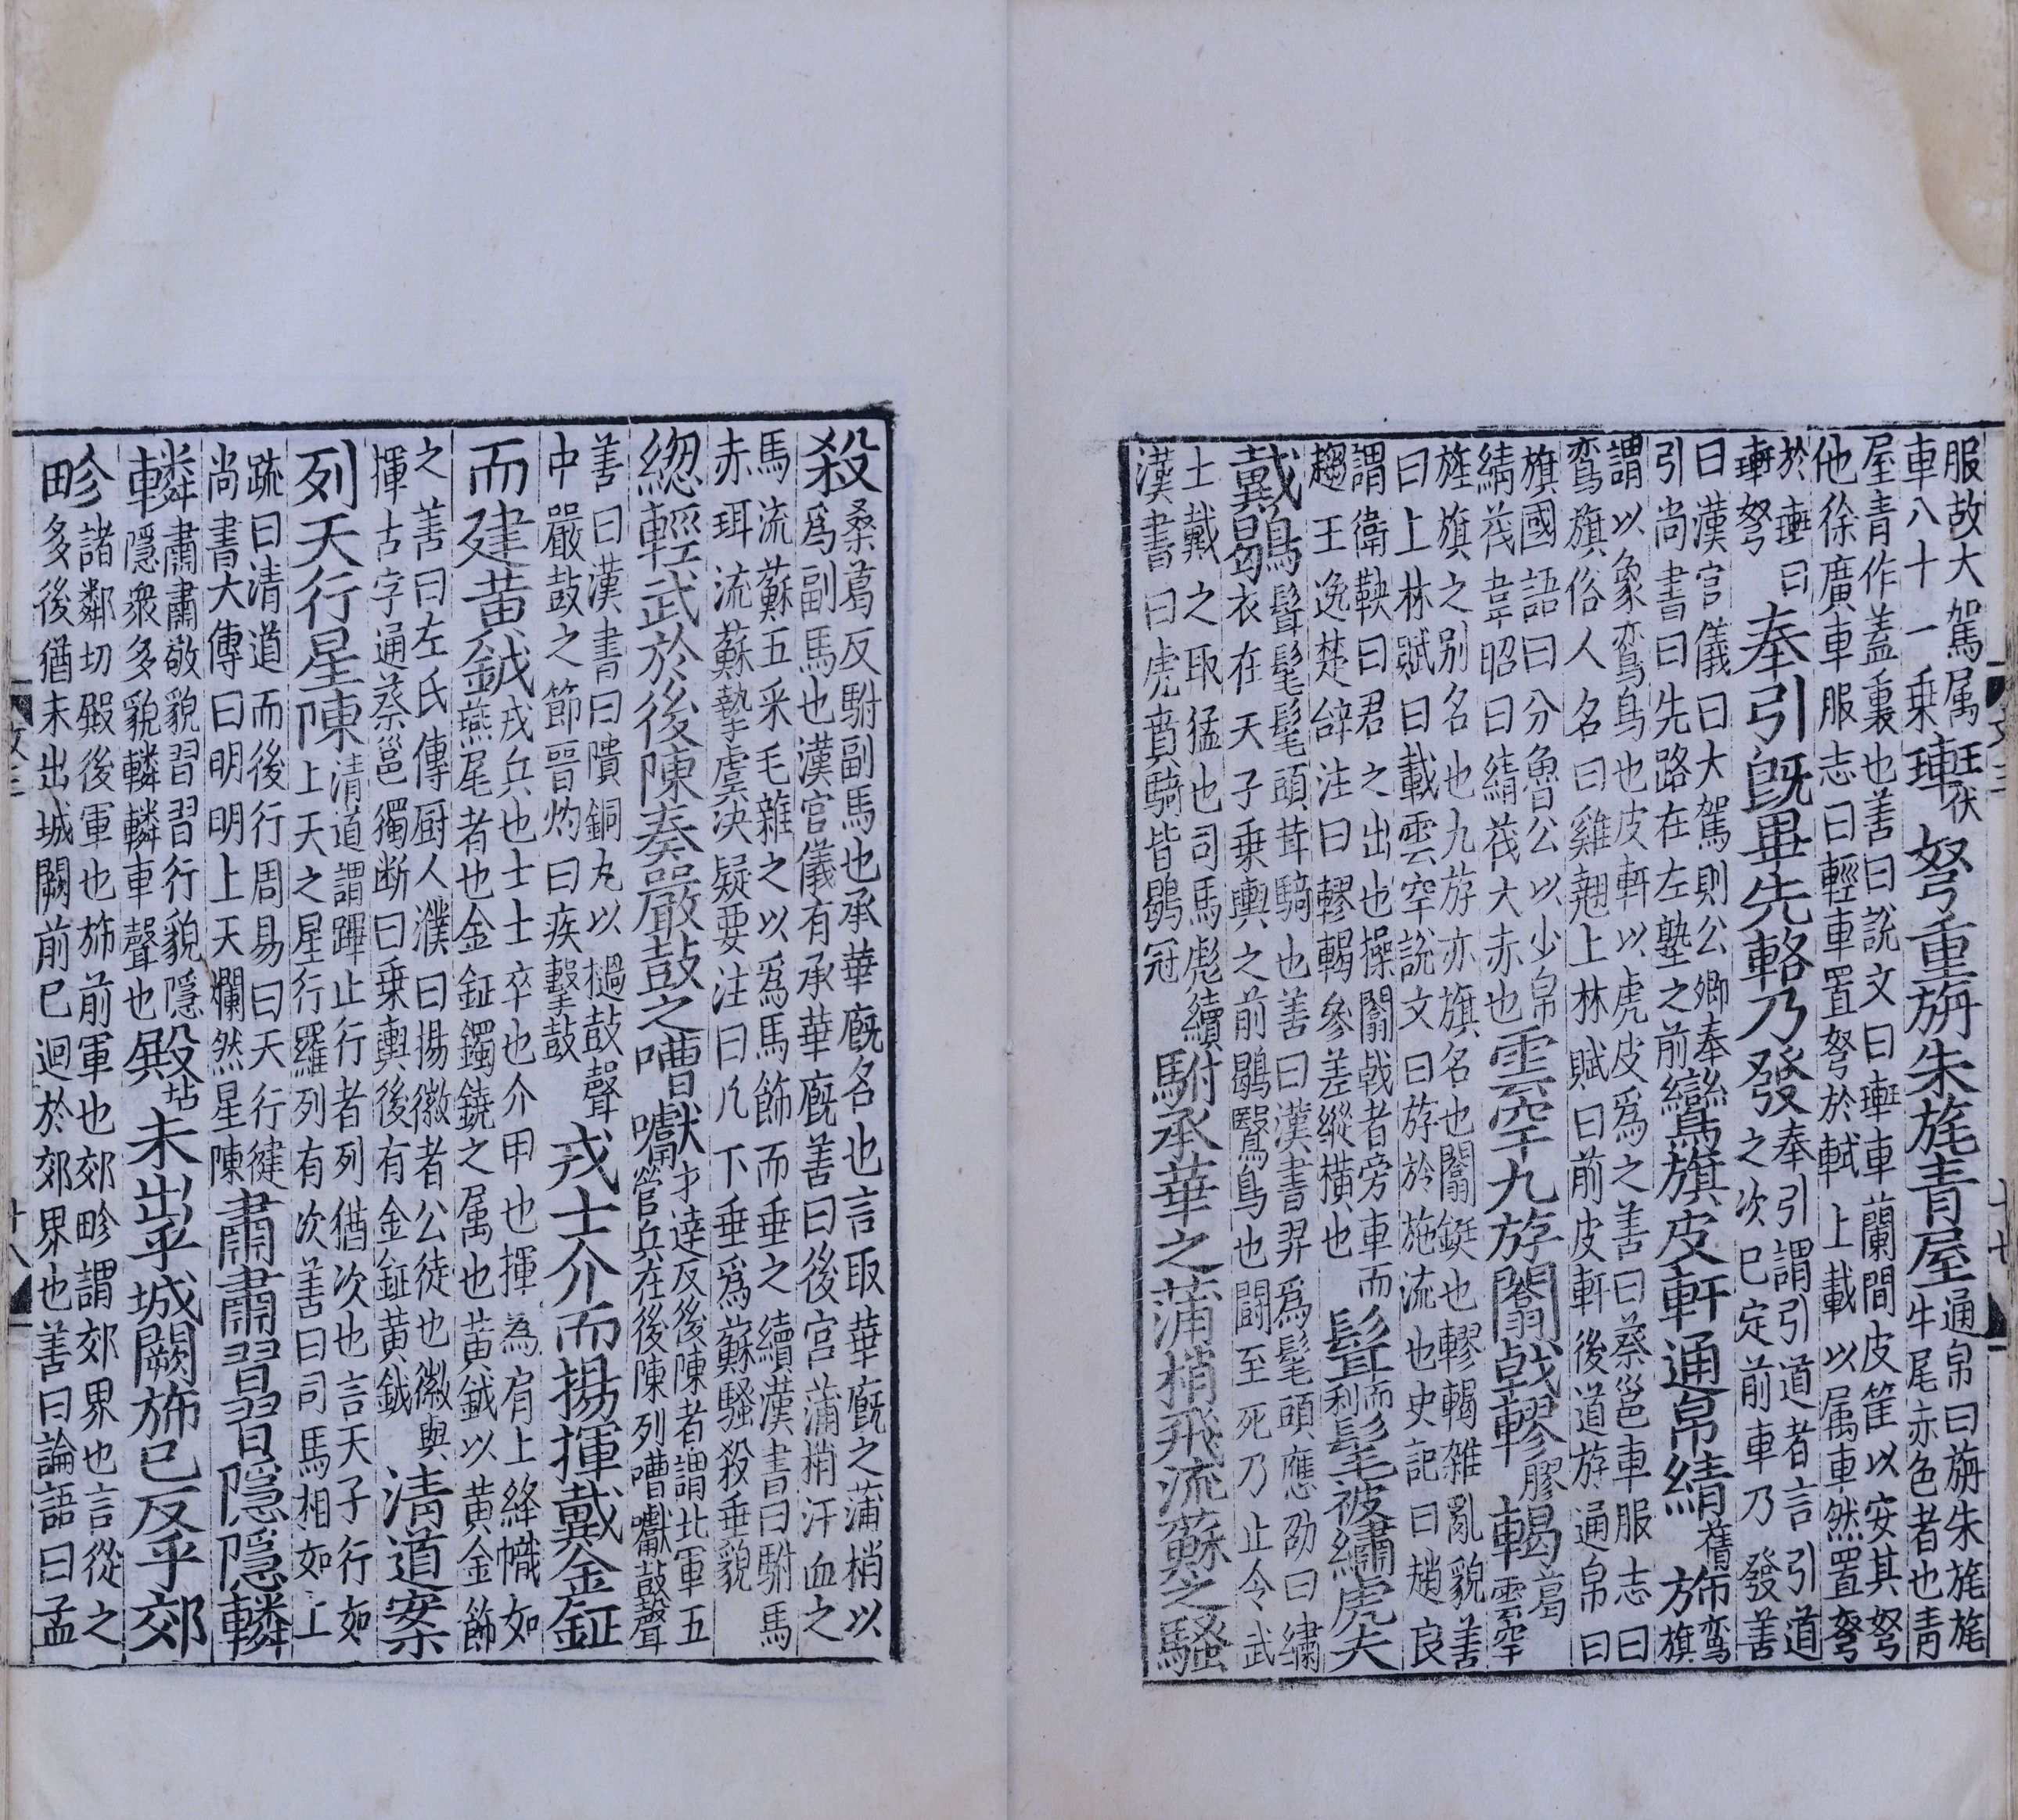 服故大駕属
車八十一乗𤦲扶 弩重旃朱旄青屋通帛曰旃朱旄旄
牛尾赤色者也青
屋青作盖裏也善曰說文曰𤦲車蘭間皮筐以安其弩
他徐廣車服志曰輕車置弩於軾上載以属車然置弩
於𤦲曰
𤦲弩 奉引既畢先輅乃發奉引謂引道者言引道
之次已定前車乃發善
曰漢官儀曰大駕則公卿奉
引尚書曰先路在左塾之前鸞旗皮軒通帛綪舊斾鸞
旗
謂以象鸞鳥也皮軒以虎皮爲之善曰蔡邕車服志曰
鸞旗俗人名曰雞翹上林賦曰前皮軒後道斿通帛曰
旗國語曰分魯公以少帛
綪茷韋昭曰綪茷大赤也雲罕九斿闟戟轇膠轕葛雲罕
旌旗之别名也九斿亦旗名也闟鋋也轇轕雜亂貌善
曰上林賦曰載雲罕說文曰斿於施流也史記曰趙良
謂衛鞅曰君之出也操闟戟者旁車而
趨王逸楚辭注曰轇轕參差縱横也 髶而利髦被繡虎夫
戴鶡髶髦髦頭茸騎也善曰漢書羿爲髦頭應劭曰繡
衣在天子乗輿之前鶡鷖鳥也鬭至死乃止令武
士戴之取猛也司馬彪續
漢書曰虎賁騎皆鶡冠 駙承華之蒲梢飛流蘇之騷
殺桑葛反駙副馬也承華廐名也言取華廐之蒲梢以
爲副馬也漢官儀有承華廐善曰後宮蒲梢汗血之
馬流蘇五采毛雜之以爲馬飾而垂之續漢書曰駙馬
赤珥流蘇摯虞决疑要注曰凡下垂爲蘇騷殺垂貌
緫輕武於後陳奏嚴鼓之嘈㘔才逹反後陳者謂北軍五
營兵在後陳列嘈㘔鼓聲
善曰漢書曰隤銅丸以擿鼓聲
中嚴鼓之節晋灼曰疾擊鼓 戎士介而揚揮戴金鉦
而建黃鉞戎兵也士士卒也介甲也揮為肩上絳幟如
燕尾者也金鉦鐲鐃之属也黃鉞以黄金飾
之善曰左氏傳厨人濮曰揚徽者公徒也徽與
揮古字通蔡邕獨断曰乗輿後有金鉦黄鉞 清道案
列天行星陳清道謂蹕止行者列猶次也言天子行如
上天之星行羅列有次善曰司馬相如上
疏曰清道而後行周易曰天行健
尚書大傳曰明明上天爛然星陳 肅肅習習隱隱轔
轔肅肅敬貌習習行貌隱
隱衆多貌轔轔車聲也殿坫未出乎城闕斾已反乎郊
畛諸鄰切殿後軍也斾前軍也郊畛謂郊界也言從之
多後猶未出城闕前已迴於郊界也善曰論語曰孟